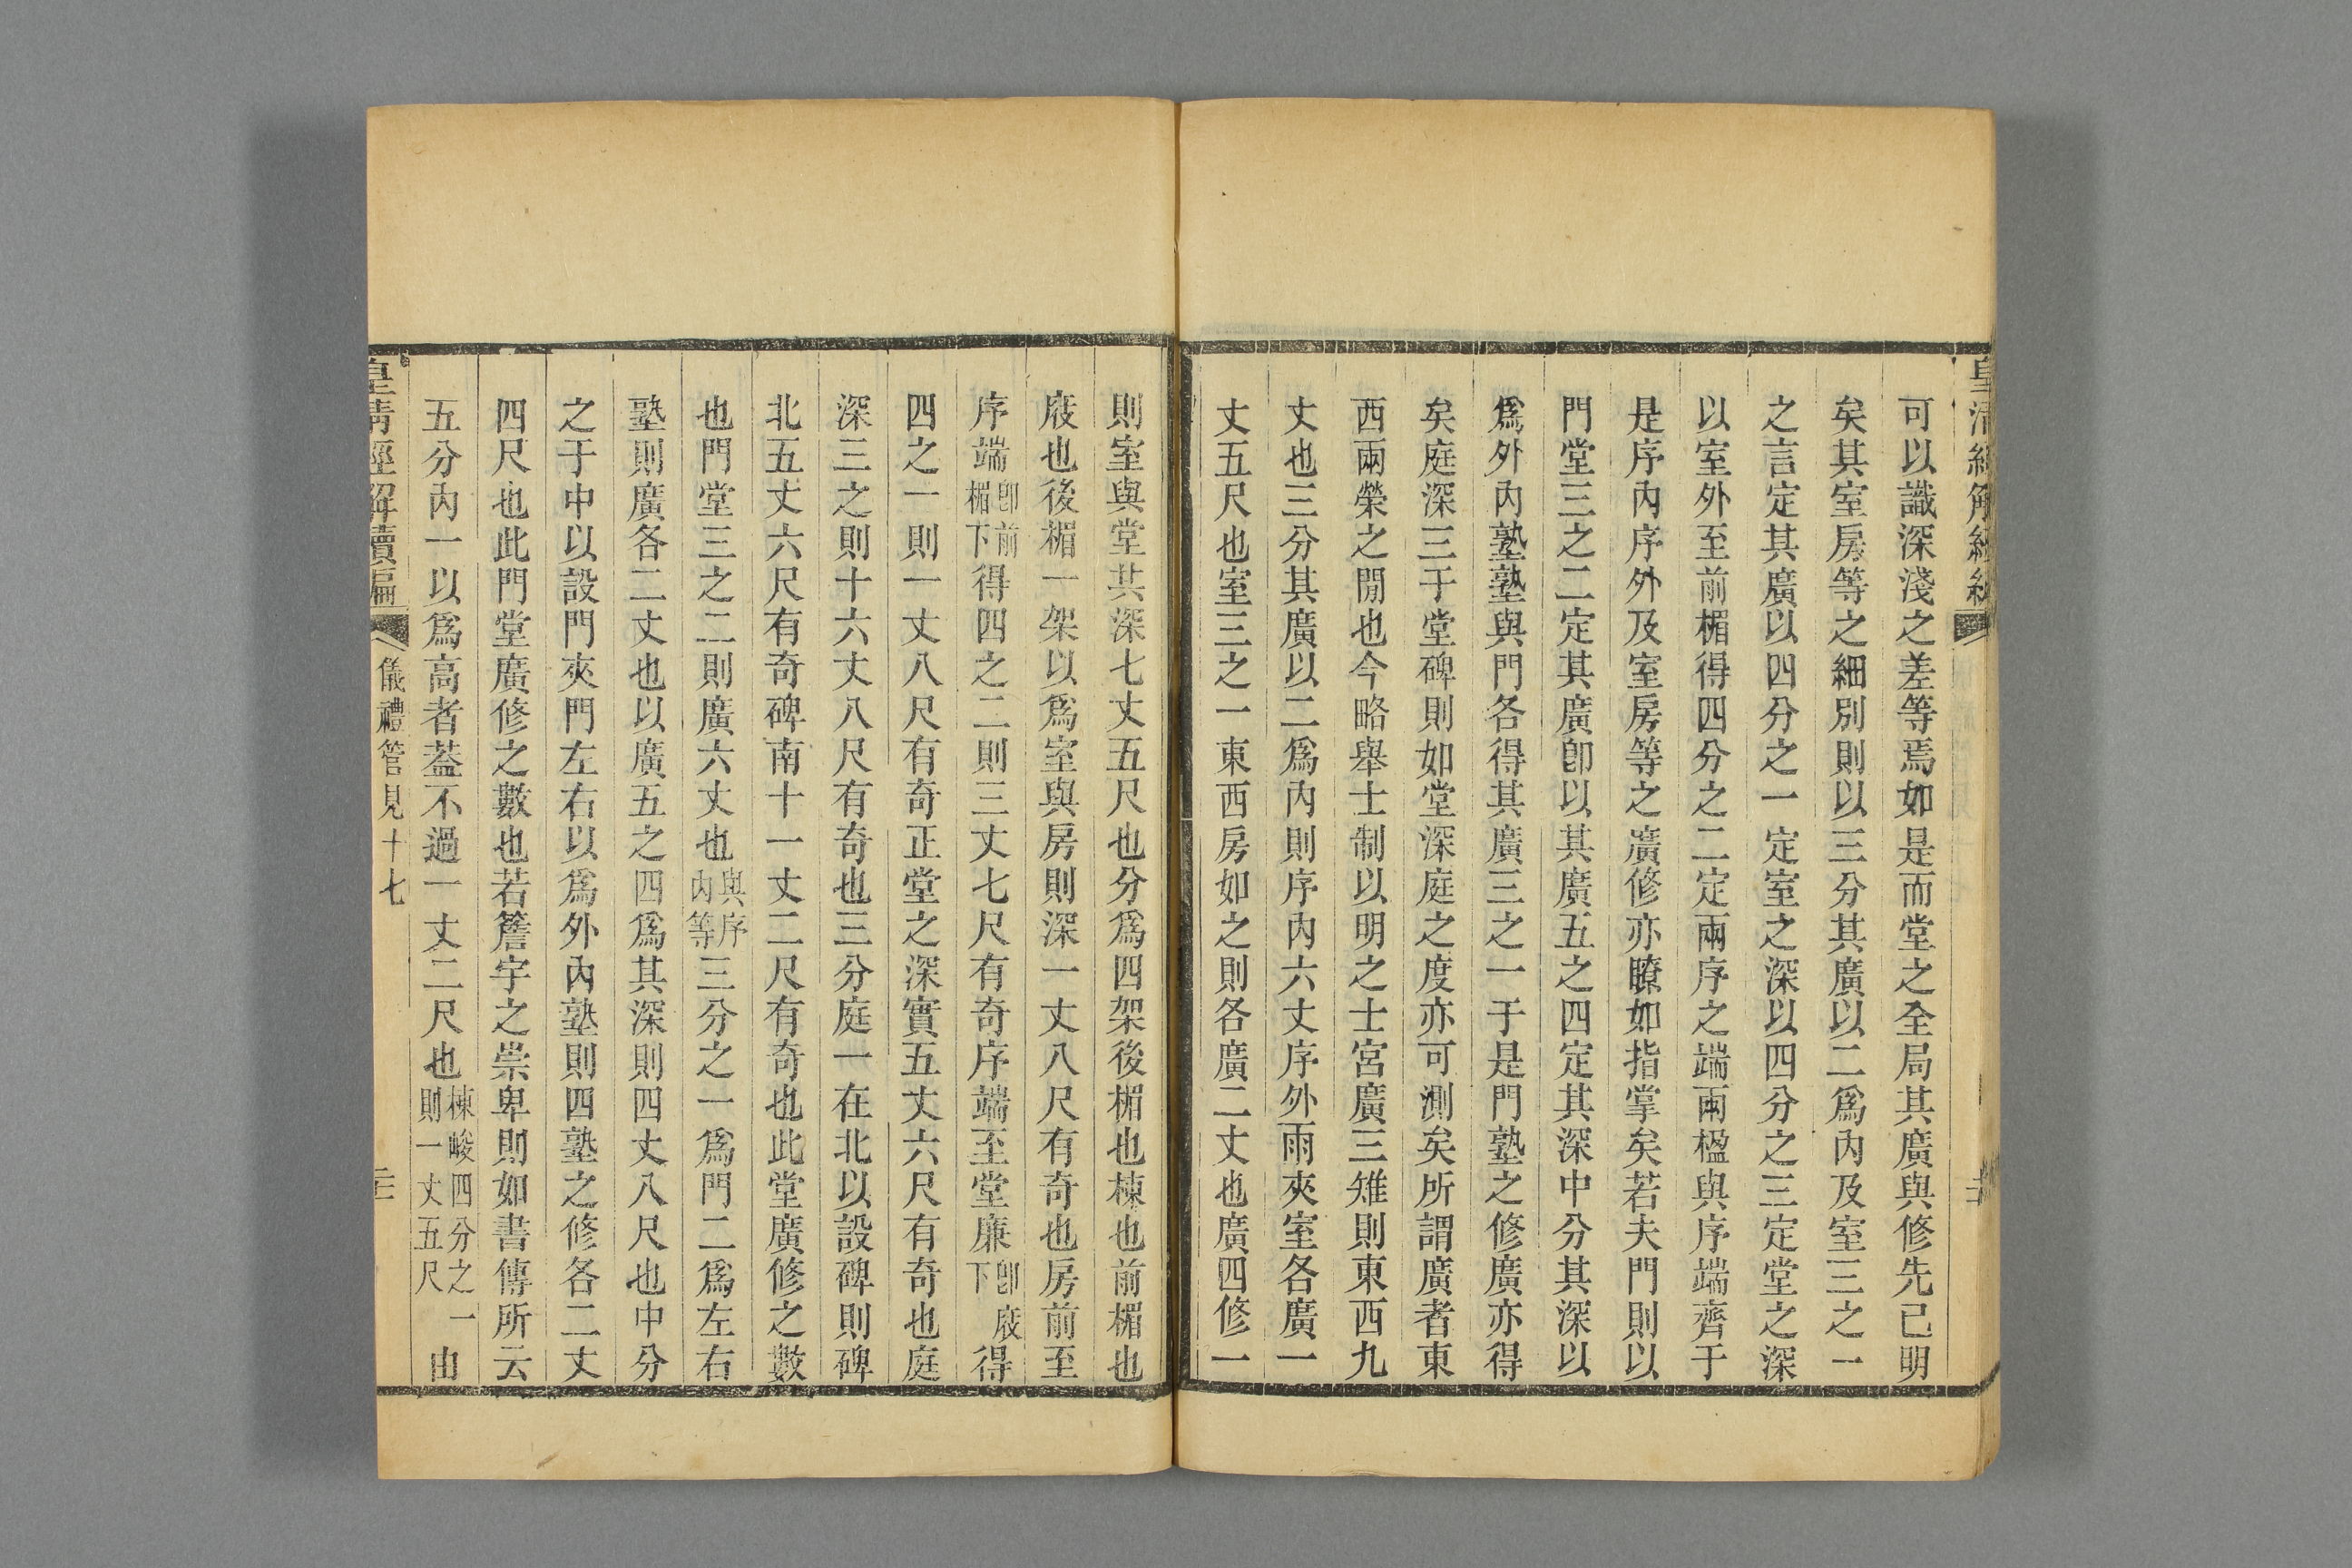 可以識深淺之差等焉如是而堂之全局其廣與修先已明
矣其室房等之細別則以三分其廣以二爲內及室三之一
之言定其廣以四分之一定室之深以四分之三定堂之深
以室外至前楣得四分之二定兩序之端兩楹與序端齊于
是序內序外及室房等之廣修亦瞭如指掌矣若夫門則以
門堂三之二定其廣卽以其廣五之四定其深中分其深以
爲外內塾塾與門各得其廣三之一于是門塾之修廣亦得
矣庭深三于堂碑則如堂深庭之度亦可測矣所謂廣者東
西兩榮之閒也今略舉士制以明之士宮廣三雉則東西九
丈也三分其廣以二爲內則序內六丈序外兩夾室各廣一
丈五尺也室三之一東西房如之則各廣二丈也廣四修一
則室與堂共深七丈五尺也分爲四架後楣也棟也前楣也
庪也後楣一架以爲室與房則深一丈八尺有奇也房前至
序端卽前楣下得四之二則三丈七尺有奇序端至堂廉卽庪下得
四之一則一丈八尺有奇正堂之深實五丈六尺有奇也庭
深三之則十六丈八尺有奇也三分庭一在北以設碑則碑
北五丈六尺有奇碑南十一丈二尺有奇也此堂廣修之數
也門堂三之二則廣六丈也與序內等三分之一爲門二爲左右
塾則廣各二丈也以廣五之四爲其深則四丈八尺也中分
之于中以設門夾門左右以爲外內塾則四塾之修各二丈
四尺也此門堂廣修之數也若簷宇之崇卑則如書傳所云
五分內一以爲高者蓋不過一丈二尺也棟峻四分之一則一丈五尺由
皇清經解續編 儀禮管見十七